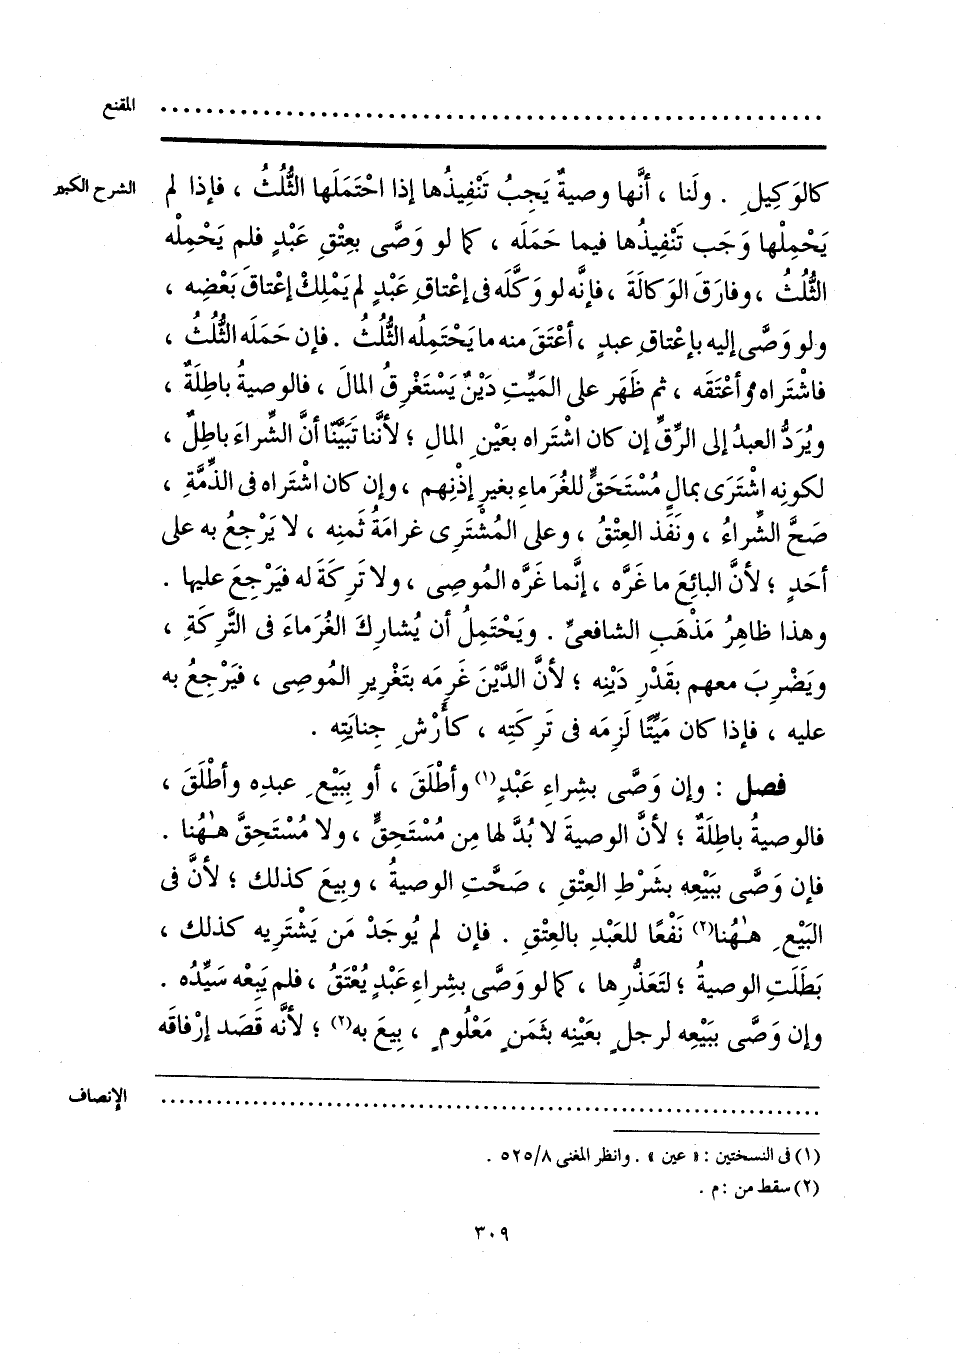 المقنع ........................................
الشرح الكبير
كالوَكِيلِ . ولَنا ، أنَّها وصيةٌ يَجِبُ تَنْفِيذُها إذا احْتَمَلَها الثُّلُثُ ، فإذا لم
يَحْمِلْها وَجَب تَنْفِيذُها فيما حَمَلَه ، كما لو وَصَّى بعِتْقِ عَبْدٍ فلم يَحْمِلْه
الثُّلُثُ ، وفارَقَ الوَكالَةَ ، فإنَّه لو وَكَّلَه فى إعْتاقِ عَبْدٍ لم يَمْلِكْ إعْتاقَ بَعْضِه ،
ولو وَصَّى إليه بإعْتاقِ عبدٍ ، أعْتَقَ منه ما يَحْتَمِلُه الثُّلُثُ . فإن حَمَلَه الثُّلُثُ ،
فاشْتَراه وأعْتَقَه ، ثم ظَهَر على المَيِّتِ دَيْنٌ يَسْتَغْرِقُ المالَ ، فالوصيةُ باطِلَةٌ ،
ويُرَدُّ العبدُ إلى الرِّقِّ إن كان اشْتَراه بعَيْنِ المالِ ؛ لأنَّنا تَبَيَّنّا أنَّ الشِّراءَ باطِلٌ ،
لكونِه اشْتَرَى بمالٍ مُسْتَحَقٍّ للغُرَماءِ بغيرِ إذْنِهم ، وإن كان اشْتَراه فى الذِّمَّةِ ،
صَحَّ الشِّراءُ ، ونَفَذ العِتْقُ ، وعلى المُشْتَرِى غرامَةُ ثَمنِه ، لا يَرْجِعُ به على
أحَدٍ ؛ لأنَّ البائِعَ ما غَرَّه ، إنَّما غَرَّه المُوصِى ، ولا تَرِكَةَ له فيَرْجِعَ عليها .
وهذا ظاهِرُ مَذْهَبِ الشافعىِّ . ويَحْتَمِلُ أن يُشارِكَ الغُرَماءَ فى التَّرِكَةِ ،
ويَضْرِبَ معهم بقَدْرِ دَيْنِه ؛ لأنَّ الدَّيْنَ غَرِمَه بتَغْرِيرِ المُوصِى ، فيَرْجِعُ به
عليه ، فإذا كان مَيِّتًا لَزِمَه فى تَرِكَتِه ، كأَرْشِ جِنايَتِه .
فصل : وإن وَصَّى بشِراءِ عَبْدٍ(١) وأطْلَقَ ، أو ببَيْعِ عبدِه وأطْلَقَ ،
فالوصيةُ باطِلَةٌ ؛ لأنَّ الوصيةَ لا بُدَّ لها مِن مُسْتَحِقٍّ ، ولا مُسْتَحِقَّ هٰهُنا .
فإن وَصَّى ببَيْعِه بشَرْطِ العِتْقِ ، صَحَّتِ الوصيةُ ، وبِيعَ كذلك ؛ لأنَّ فى
البَيْعِ هٰهُنا(٢) نَفْعًا للعَبْدِ بالعِتْقِ . فإن لم يُوجَدْ مَن يَشْتَرِيه كذلك ،
بَطَلَتِ الوصيةُ ؛ لتَعَذُّرِها ، كما لو وَصَّى بشِراءِ عَبْدٍ يُعْتَقُ ، فلم يَبِعْه سَيِّدُه .
وإن وَصَّى ببَيْعِه لرجلٍ بعَيْنِه بثَمَنٍ مَعْلُومٍ ، بِيعَ به(٢) ؛ لأنَّه قَصَد إرْفاقَه
الإنصاف ........................................
(١) فى النسختين : « عين » . وانظر المغنى ٨/٥٢٥ .
(٢) سقط من : م .
٣٠٩